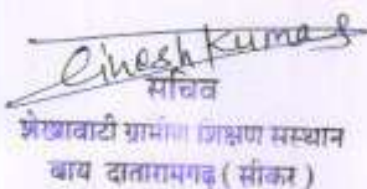 Ginesh Kumar
सचिव
शेखावाटी ग्रामीण शिक्षण संस्थान
बाय दातारामगढ़ ( सीकर )